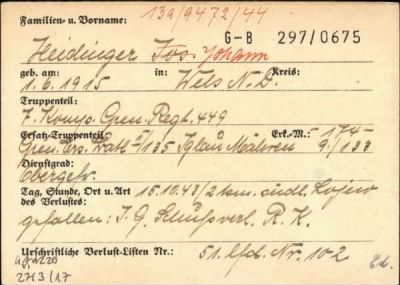 Familien- u. Vorname: 139/9472/44
Heidinger Jos. Johann G-B 297/0675
geb. am: in: Kreis:
1.6.1915 Wels N.D.
Truppenteil:
7. Komp. Gren. Regt. 449
Ersatz-Truppenteil: Erk.-M.: -174-
Gren. Ers. Batl. I/135 Iglau Mähren 9./133
Dienstgrad:
Obergefr.
Tag, Stunde, Ort u. Art 15.10.43/2 km. südl. Lojew
des Verlustes:
gefallen: I.G. Schußverl. R.K.
Urschriftliche Verlust-Listen Nr.: 51. lfd. Nr. 102
2713/17